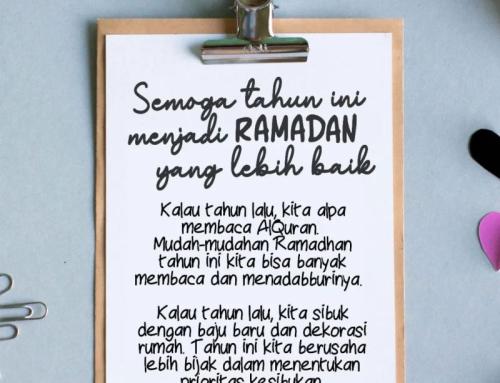 Semoga tahun ini
menjadi RAMADAN
yang lebih baik
Kalau tahun lalu, kita alpa
membaca AlQuran.
Mudah-mudahan Ramadhan
tahun ini kita bisa banyak
membaca dan menadabburinya.
Kalau tahun lalu, kita sibuk
dengan baju baru dan dekorasi
rumah. Tahun ini kita berusaha
lebih bijak dalam menentukan
prioritas kesibukan